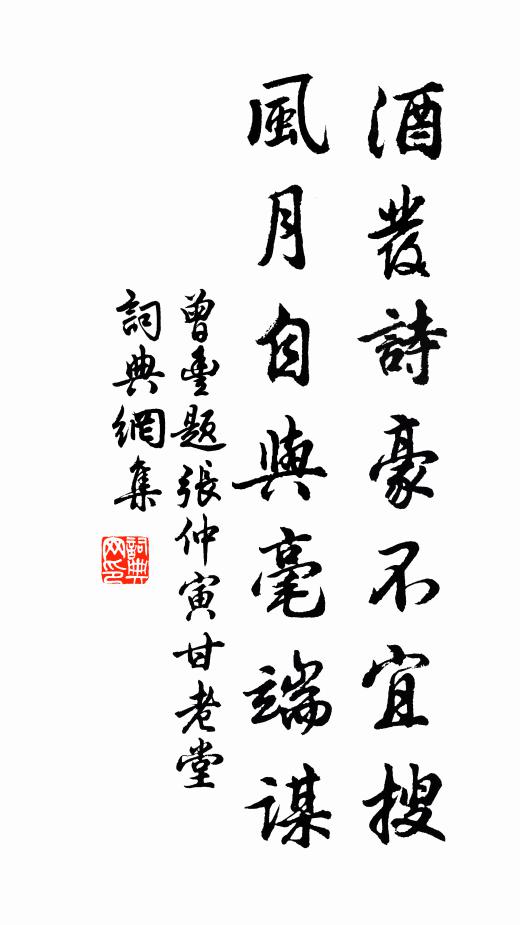 酒發詩豪不宜搜
風月自與毫端謀
曾豐題張仲寅甘老堂
詞典網集
詞典網印